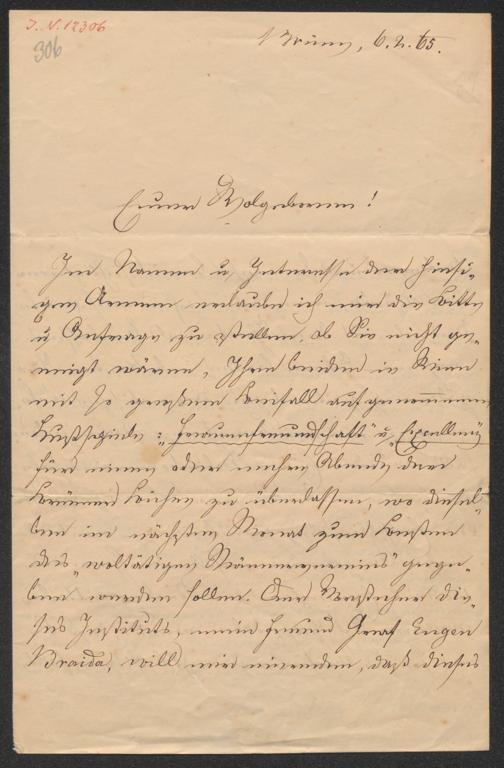 I. N. 12306
306
Brünn, 6.2.65.
Euer Wolgeboren!
Im Namen u Interesse der hiesi-
gen Armen erlaube ich mir die Bitte
u Anfrage zu stellen, ob Sie nicht ge-
neigt wären, Ihre beiden in Wien
mit so großem Beifall aufgenommenen
Lustspiele: "Frauenfreundschaft" u "Excellenz"
für einen oder mehre Abende der
Brünner Bühne zu überlassen, wo diesel-
ben im nächsten Monat zum Besten
des "woltätigen Männervereins" gege-
ben werden sollen. Der Vorsteher die-
ses Instituts, mein Freund Graf Eugen
Braida, will mir einreden, daß dieses